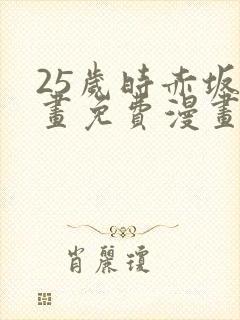 25歲時赤坂
畫免費漫畫
肖麗瓊